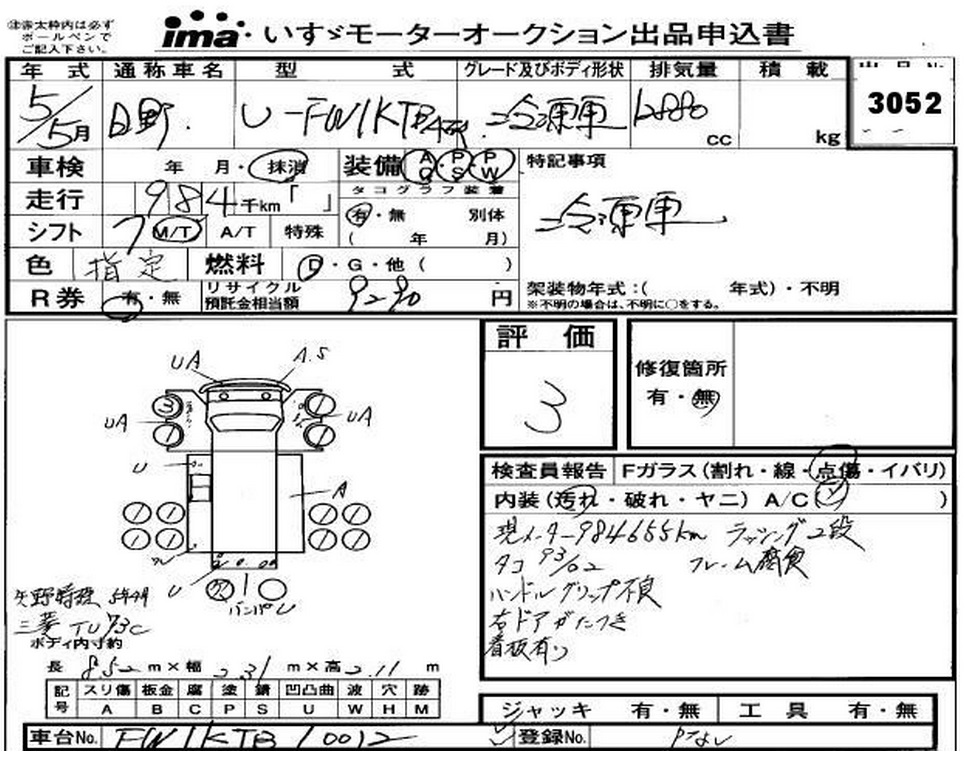 ㊟赤太枠内は必ず
ボールペンで
ご記入下さい。
ima・いすゞモーターオークション出品申込書
年式 通称車名 型式 グレード及びボディ形状 排気量 積載
5/5月 日野. U-FW1KTB 冷凍車 12880cc kg 3052
車検 年 月・抹消 装備 A・P・P C S W 特記事項
走行 984千km「 」 タコグラフ装着 冷凍車
シフト 7 M/T A/T 特殊 有・無 別体
( 年 月)
色 指定 燃料 D・G・他( )
R券 有・無 リサイクル預託金相当額 9290円 架装物年式:( 年式)・不明
※不明の場合は、不明に○をする。
評価 3
修復箇所
有・無
UA A.S
3
UA UA
U A
U
バンパU
検査員報告 Fガラス(割れ・線・点傷・イバリ)
内装(汚れ・破れ・ヤニ) A/C( )
現メーター984655km ラッシング2段
タコ 93/02 フレーム腐食
ハンドルグリップ不良
右ドアガタつき
看板有り
矢野特殊 5年4月
三菱 TU73C
ボディ内寸約
長 8.52 m×幅 2.31 m×高 2.11 m
記号 スリ傷 板金 腐 塗 錆 凹凸曲 波 穴 跡
A B C P S U W H M
ジャッキ 有・無 工具 有・無
車台No. FW1KTB 10012 登録No. ナシ